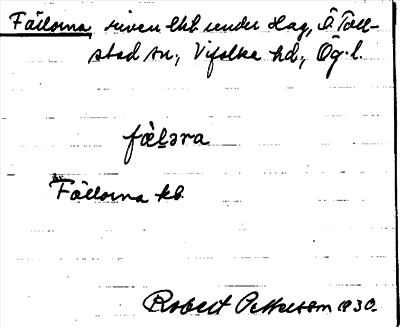 Fällorna, riven lht under Hag, Ö Toll-
stad sn, Vifolka hd, Ög. l.
fæḷəra
Fällorna kb.
Robert Pettersson 1930.